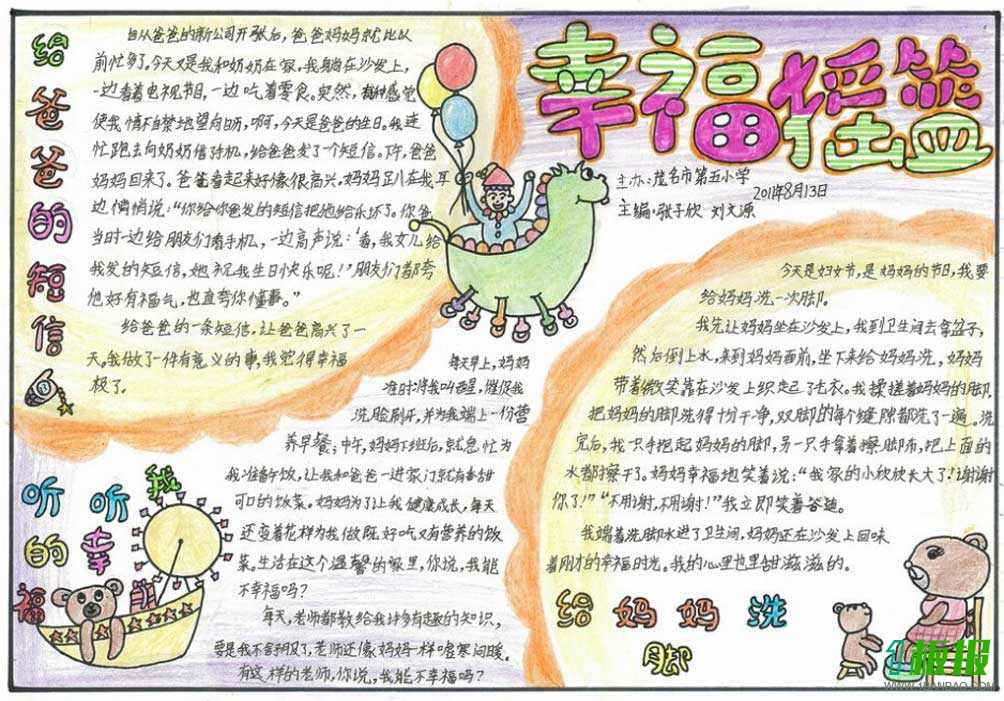 幸福摇篮
主办:茂名市第五小学
2011年8月13日
主编:张子欣 刘文源
给爸爸的短信
自从爸爸的新公司开张后,爸爸妈妈就比以
前忙多了。今天又是我和奶奶在家,我躺在沙发上,
一边看着电视节目,一边吃着零食。突然,感觉
使我情不自禁地望向日历,啊,今天是爸爸的生日。我连
忙跑去向奶奶借手机,给爸爸发了个短信。下午,爸爸
妈妈回来了。爸爸看起来好像很高兴。妈妈趴在我耳
边悄悄说:“你给你爸发的短信把他给乐坏了。你爸
当时一边给朋友们看手机,一边高声说:‘看,我女儿给
我发的短信,她祝我生日快乐呢!’朋友们都夸
他好有福气,也直夸你懂事。”
给爸爸的一条短信,让爸爸高兴了一
天。我做了一件有意义的事,我觉得幸福
极了。
听听我
的幸
福
每天早上,妈妈
准时将我叫醒,催促我
洗脸刷牙,并为我端上一份营
养早餐;中午,妈妈下班后,就急忙为
我准备午饭,让我和爸爸一进家门就有香甜
可口的饭菜。妈妈为了让我健康成长,每天
还变着花样为我做既好吃又有营养的饭
菜。生活在这个温馨的家里,你说,我能
不幸福吗?
每天,老师都教给我许多有趣的知识,
要是我不舒服了,老师还像妈妈一样嘘寒问暖。
有这样的老师,你说,我能不幸福吗?
今天是妇女节,是妈妈的节日,我要
给妈妈洗一次脚。
我先让妈妈坐在沙发上,我到卫生间去拿盆子,
然后倒上水,来到妈妈面前,坐下来给妈妈洗,妈妈
带着微笑靠在沙发上织起了毛衣。我揉搓着妈妈的脚,
把妈妈的脚洗得十分干净,双脚的每个缝隙都洗了一遍。洗
完后,我一只手把起妈妈的脚,另一只手拿着擦脚布,把上面的
水都擦干了。妈妈幸福地笑着说:“我家的小欣欣长大了!谢谢
你了!”“不用谢,不用谢!”我立即笑着答道。
我端着洗脚水进了卫生间,妈妈还在沙发上回味
着刚才的幸福时光。我的心里也甜滋滋的。
给妈妈洗
脚
板报
WWW.1BANBAO.COM